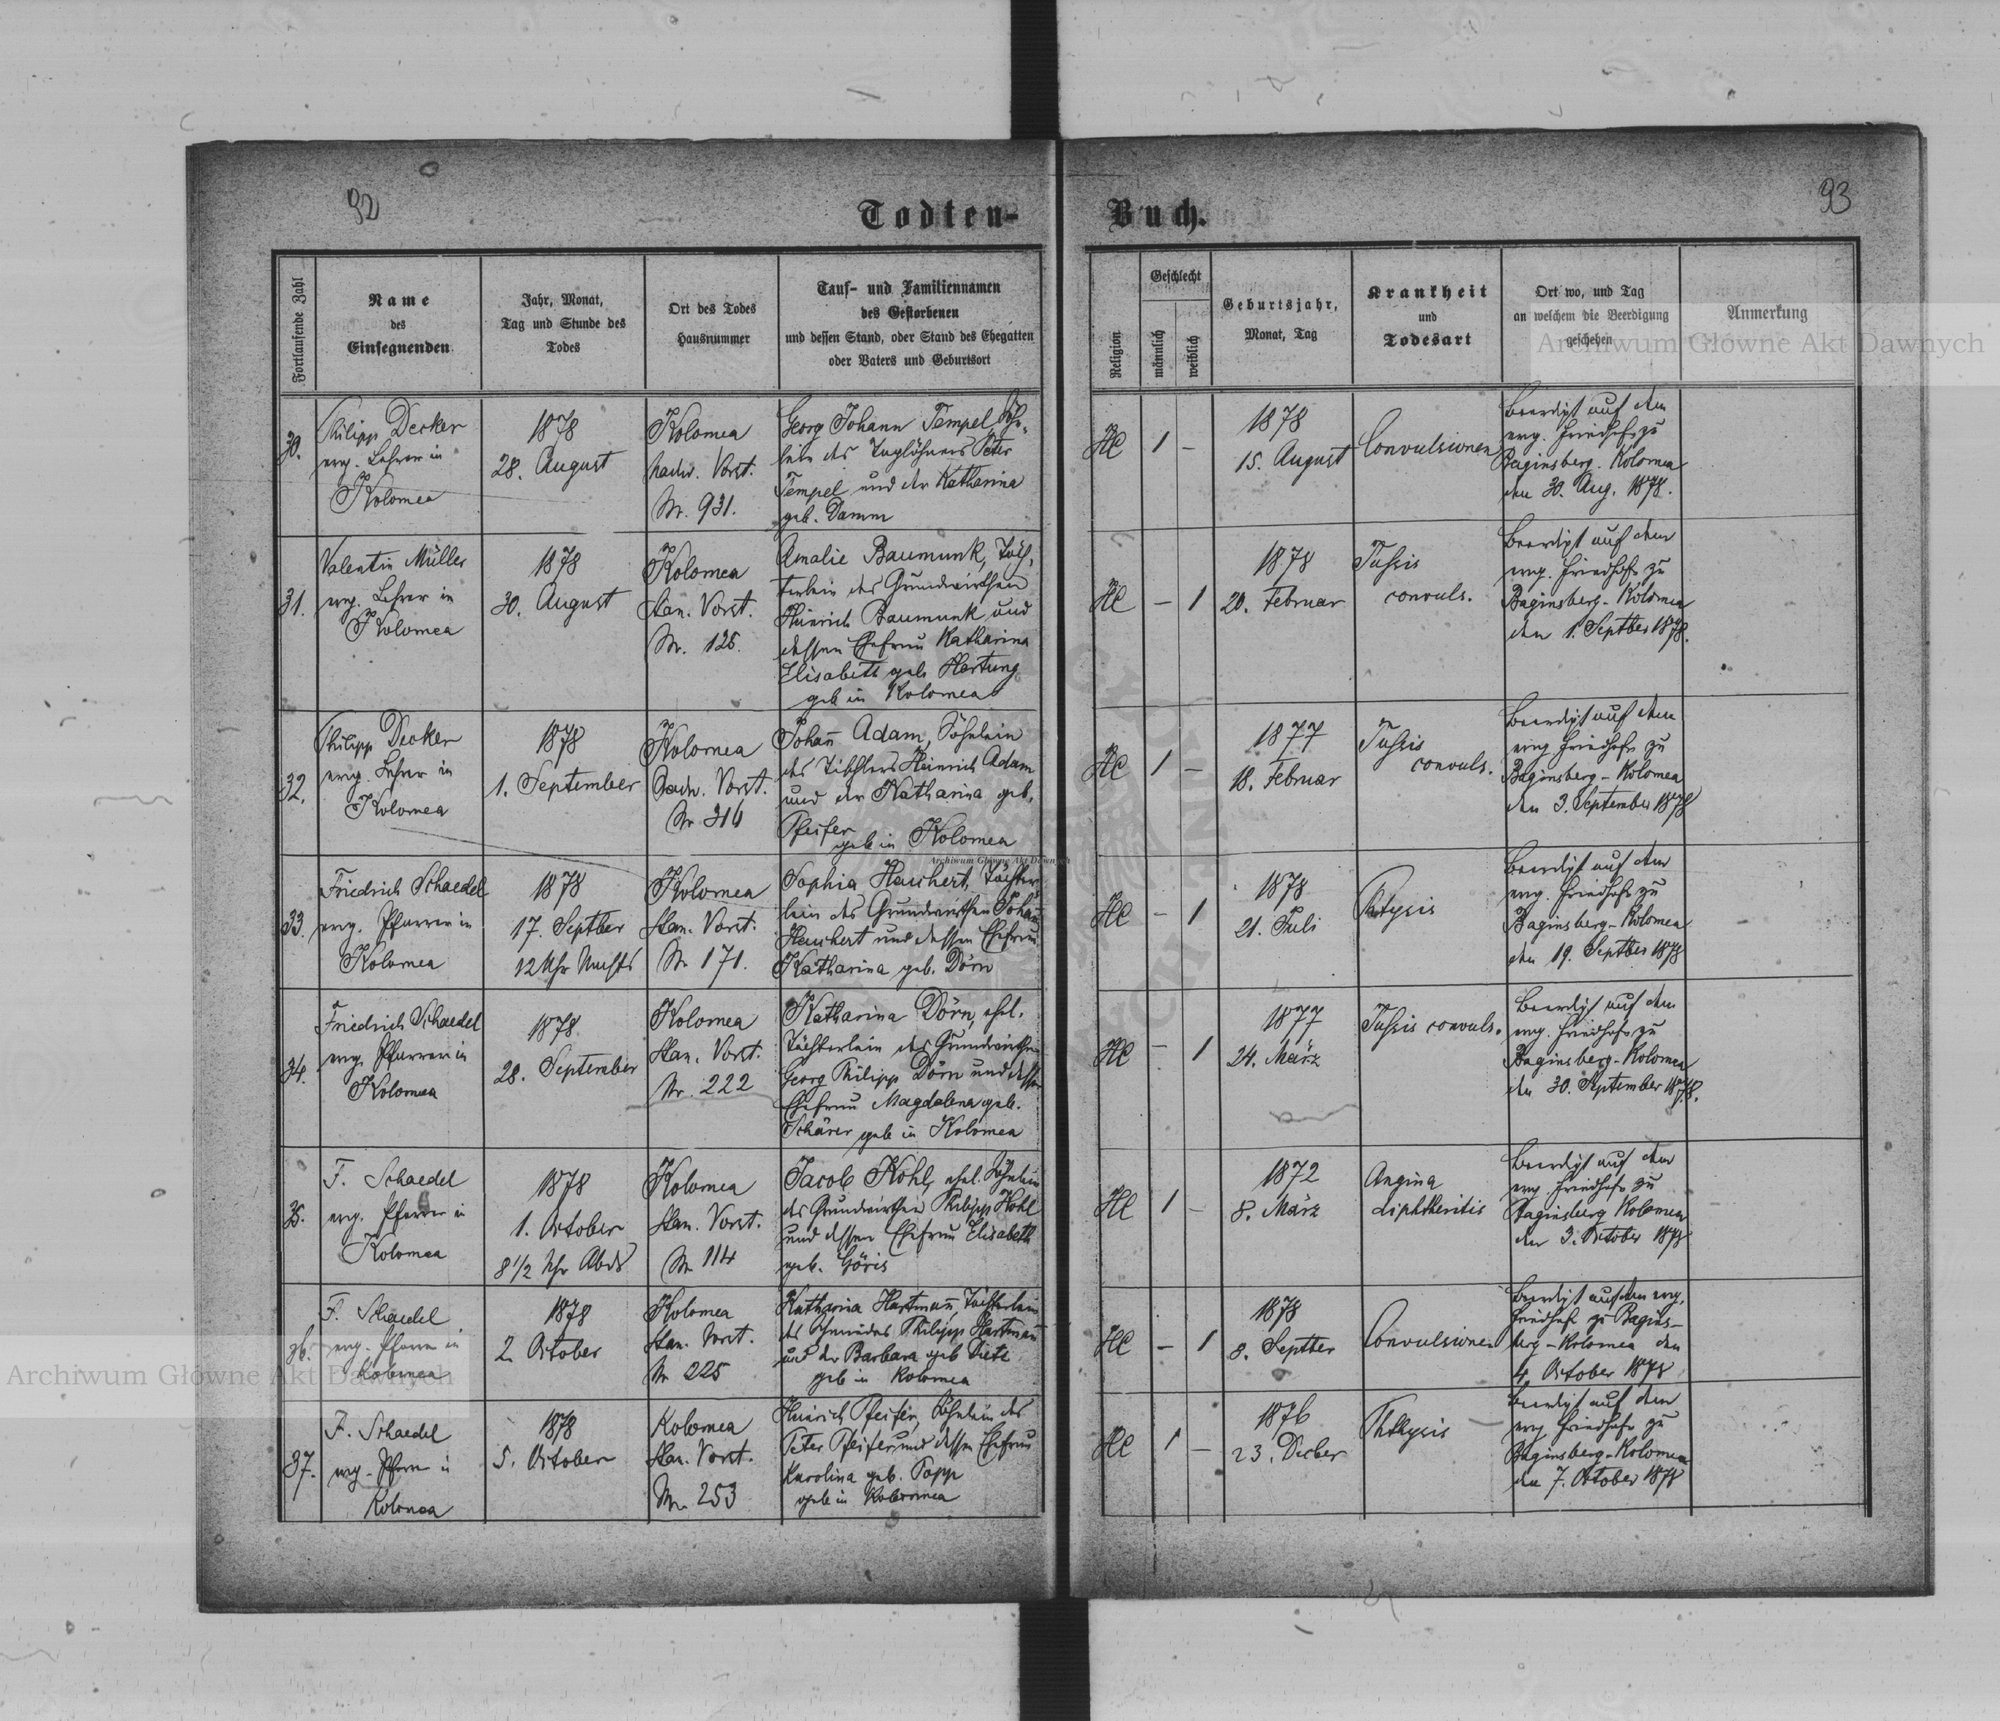 92
Todten-
Fortlaufende Zahl
Name
des
Einsegnenden
Jahr, Monat,
Tag und Stunde des
Todes
Ort des Todes
Hausnummer
Tauf- und Familiennamen
des Gestorbenen
und dessen Stand, oder Stand des Ehegatten
oder Vaters und Geburtsort
30.
Philipp Decker
evg. Lehrer in
Kolomea
1878
28. August
Kolomea
nadw. Vorst.
Nr. 931.
Georg Johann Tempel, Söhn-
lein des Taglöhners Peter
Tempel und der Katharina
geb. Damm
31.
Valentin Müller
evg. Lehrer in
Kolomea
1878
30. August
Kolomea
Stan. Vorst.
Nr. 126.
Amalie Baumunk, Töch-
terlein des Grundwirthen
Heinrich Baumunk und
dessen Ehefrau Katharina
Elisabeth geb. Hartung
geb in Kolomea
32.
Philipp Decker
evg. Lehrer in
Kolomea
1878
1. September
Kolomea
Nadw. Vorst.
Nr 316
Johañ Adam, Söhnlein
des Tischlers Heinrich Adam
und der Katharina geb.
Pfeifer
geb in Kolomea
33.
Friedrich Schaedel
evg. Pfarrer in
Kolomea
1878
17. Septber
12 Uhr Nachts
Kolomea
Stan. Vorst.
Nr 171.
Sophia Hauchert, Töchter-
lein des Grundwirthen Johañ
Hauchert und dessen Ehefrau
Katharina geb. Dörn
34.
Friedrich Schaedel
evg. Pfarrer in
Kolomea
1878
28. September
Kolomea
Stan. Vorst.
Nr. 222
Katharina Dörn, ehel.
Töchterlein des Grundwirthen
Georg Philipp Dörn und dessen
Ehefrau Magdalena geb.
Schärer geb in Kolomea
35.
F. Schaedel
evg. Pfarrer in
Kolomea
1878
1. October
8 1/2 Uhr Abds
Kolomea
Stan. Vorst.
Nr 114
Jacob Kohl, ehel. Söhnlein
des Grundwirthen Philipp Kohl
und dessen Ehefrau Elisabeth
geb. Göris
36.
F. Schaedel
evg. Pfarrer in
Kolomea
1878
2. October
Kolomea
Stan. Vorst.
Nr 225
Katharina Hartmañ, Töchterlein
des Schmiedes Philipp Hartmañ
und der Barbara geb Diete
geb in Kolomea
37.
F. Schaedel
evg. Pfarrer in
Kolomea
1878
5. October
Kolomea
Stan. Vorst.
Nr. 253
Heinrich Pfeifer, Söhnlein des
Peter Pfeifer und dessen Ehefrau
Karolina geb. Popp
geb in Kolomea
93
Buch.
Religion
Geschlecht
männlich
weiblich
Geburtsjahr,
Monat, Tag
Krankheit
und
Todesart
Ort wo, und Tag
an welchem die Beerdigung
geschehen
Anmerkung
HC
1
-
1878
15. August
Convulsionen
Beerdigt auf dem
evg. Friedhofe zu
Baginsberg. Kolomea
den 30. Aug. 1878.
HC
-
1
1878
20. Februar
Tussis
convuls.
Beerdigt auf dem
evg. Friedhofe zu
Baginsberg-Kolomea
den 1. Septber 1878.
HC
1
-
1877
18. Februar
Tussis
convuls.
Beerdigt auf dem
evg Friedhofe zu
Baginsberg-Kolomea
den 3. September 1878
HC
-
1
1878
21. Juli
Beerdigt auf dem
evg. Friedhofe zu
Baginsberg-Kolomea
den 19. Septber 1878
HC
-
1
1877
24. März
Tussis convuls.
Beerdigt auf dem
evg. Friedhofe zu
Baginsberg-Kolomea
den 30. September 1878.
HC
1
-
1872
8. März
Angina
diphtheritis
Beerdigt auf dem
evg Friedhofe zu
Baginsberg Kolomea
den 3. October 1878
HC
-
1
1878
8. Septber
Convulsionen
Beerdigt auf dem evg.
Friedhofe zu Bagins-
berg-Kolomea den
4. October 1878
HC
1
-
1876
23. Decber
Phthysis
Beerdigt auf dem
evg Friedhofe zu
Baginsberg-Kolomea
den 7. October 1878
Archiwum Główne Akt Dawnych
Archiwum Główne Akt Dawnych
Archiwum Główne Akt Dawnych